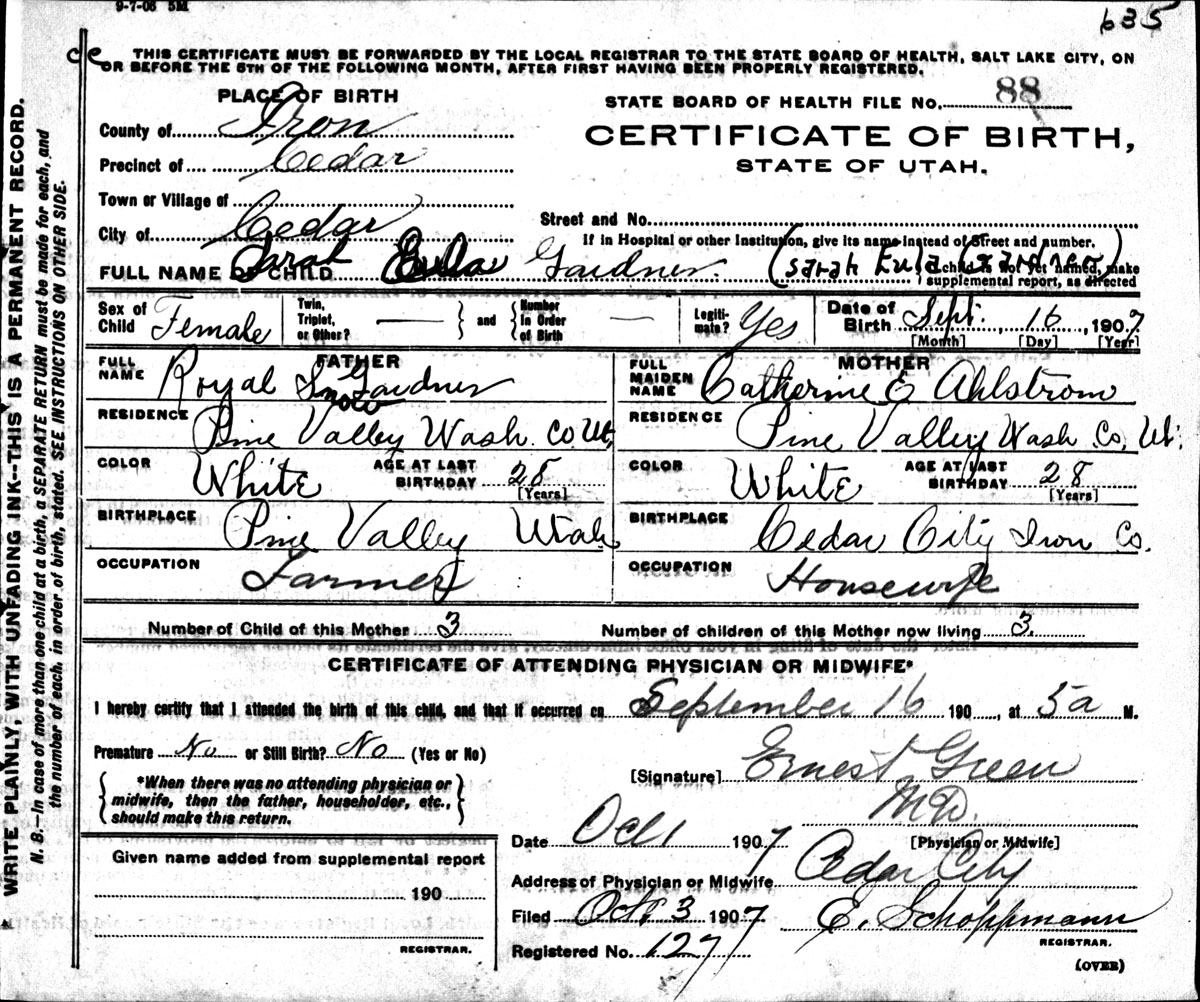 9-7-06 5M
635
THIS CERTIFICATE MUST BE FORWARDED BY THE LOCAL REGISTRAR TO THE STATE BOARD OF HEALTH, SALT LAKE CITY, ON
OR BEFORE THE 5TH OF THE FOLLOWING MONTH, AFTER FIRST HAVING BEEN PROPERLY REGISTERED.
WRITE PLAINLY, WITH UNFADING INK--THIS IS A PERMANENT RECORD.
N. B.—In case of more than one child at a birth, a SEPARATE RETURN must be made for each, and
the number of each, in order of birth, stated. SEE INSTRUCTIONS ON OTHER SIDE.
PLACE OF BIRTH
County of Iron
Precinct of Cedar
Town or Village of
City of Cedar
STATE BOARD OF HEALTH FILE No. 88
CERTIFICATE OF BIRTH,
STATE OF UTAH.
Street and No.
If in Hospital or other Institution, give its name instead of Street and number.
FULL NAME OF CHILD Sarah Eula Gardner. (Sarah Eula Gardner)
If child is not yet named, make
supplemental report, as directed
Sex of Child Female
Twin, Triplet, or Other? — and Number In Order of Birth —
Legiti-mate? Yes
Date of Birth Sept. 16, 1907
[Month] [Day] [Year]
FATHER
FULL NAME Royal Snow Gardner
RESIDENCE Pine Valley Wash. Co Ut.
COLOR White AGE AT LAST BIRTHDAY 28
[Years]
BIRTHPLACE Pine Valley Utah
OCCUPATION Farmer
MOTHER
FULL MAIDEN NAME Catherine E Ahlstrom
RESIDENCE Pine Valley Wash Co, Ut.
COLOR White AGE AT LAST BIRTHDAY 28
[Years]
BIRTHPLACE Cedar City Iron Co.
OCCUPATION Housewife
Number of Child of this Mother 3 Number of children of this Mother now living 3.
CERTIFICATE OF ATTENDING PHYSICIAN OR MIDWIFE*
I hereby certify that I attended the birth of this child, and that it occurred on September 16 190, at 5a M.
Premature No or Still Birth? No (Yes or No)
*When there was no attending physician or
midwife, then the father, householder, etc.,
should make this return.
[Signature] Ernest Green
M.D.
[Physician or Midwife]
Date Oct 1 1907
Address of Physician or Midwife Cedar City
Filed Oct 3 1907 E. Schoppmann
REGISTRAR.
Registered No. 127
(OVER)
Given name added from supplemental report
190
REGISTRAR.